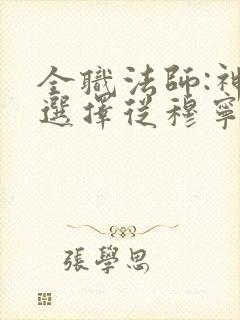 全職法師:神
選擇從穆寧
張學思